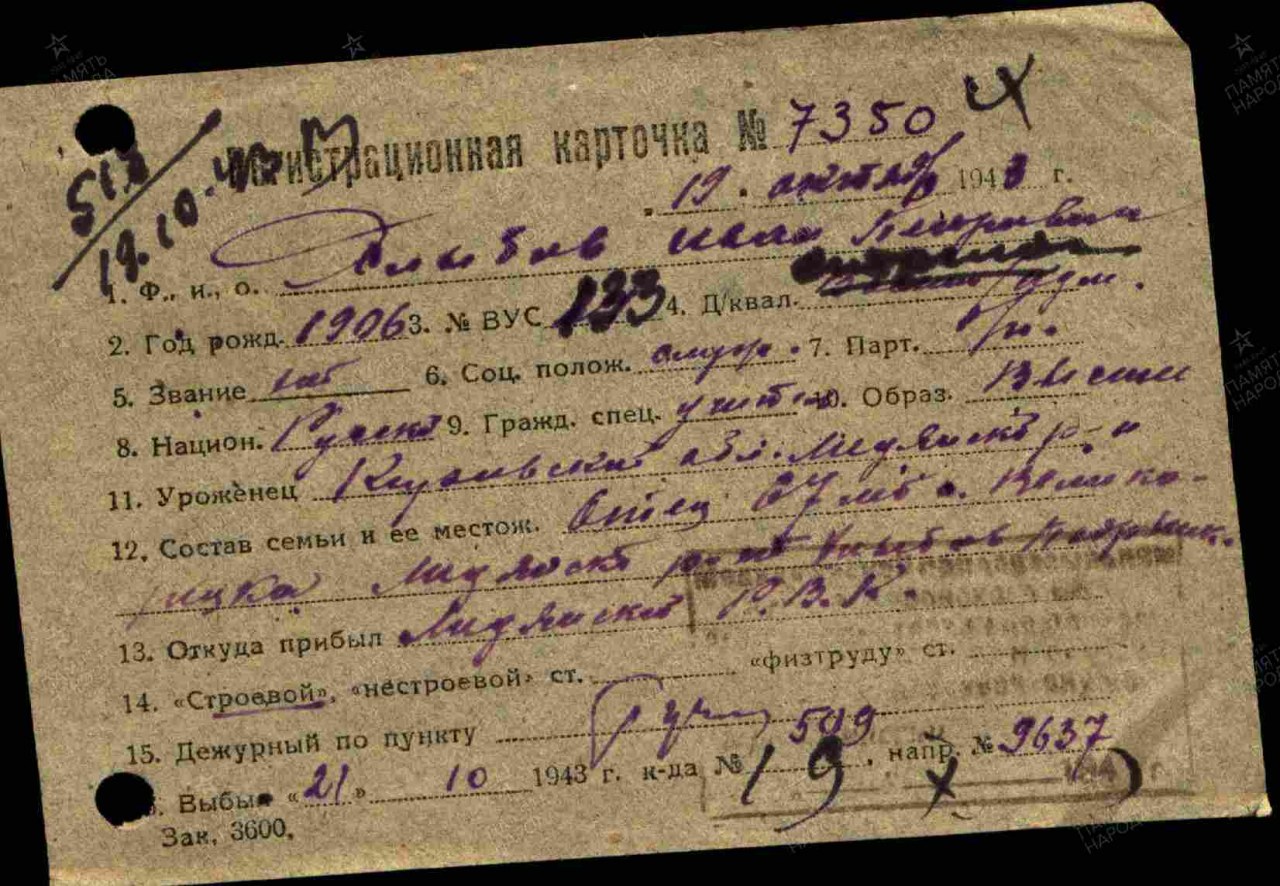 Регистрационная карточка № 7350
19. октября 1943 г.
19.10.43
1. Ф., и., о. Глыбов Иван Петрович
2. Год рожд. 1906 3. № ВУС 133 4. Д/квал.
5. Звание 6. Соц. полож. служ. 7. Парт. б/п.
8. Национ. Русск 9. Гражд. спец. учит 10. Образ. Высш
11. Уроженец Кировской обл. Медянск р-н
12. Состав семьи и ее местож. Отец 67 лет с. Велико-
рецка Медянск р-н Глыбов
13. Откуда прибыл Медянский Р.В.К.
14. «Строевой», «нестроевой» ст. «физтруду» ст.
15. Дежурный по пункту
16. Выбыл «21» 10 1943 г. к-да № 509, напр. № 9637
19 X 194 г.
Зак. 3600.
ПАМЯТЬ НАРОДА